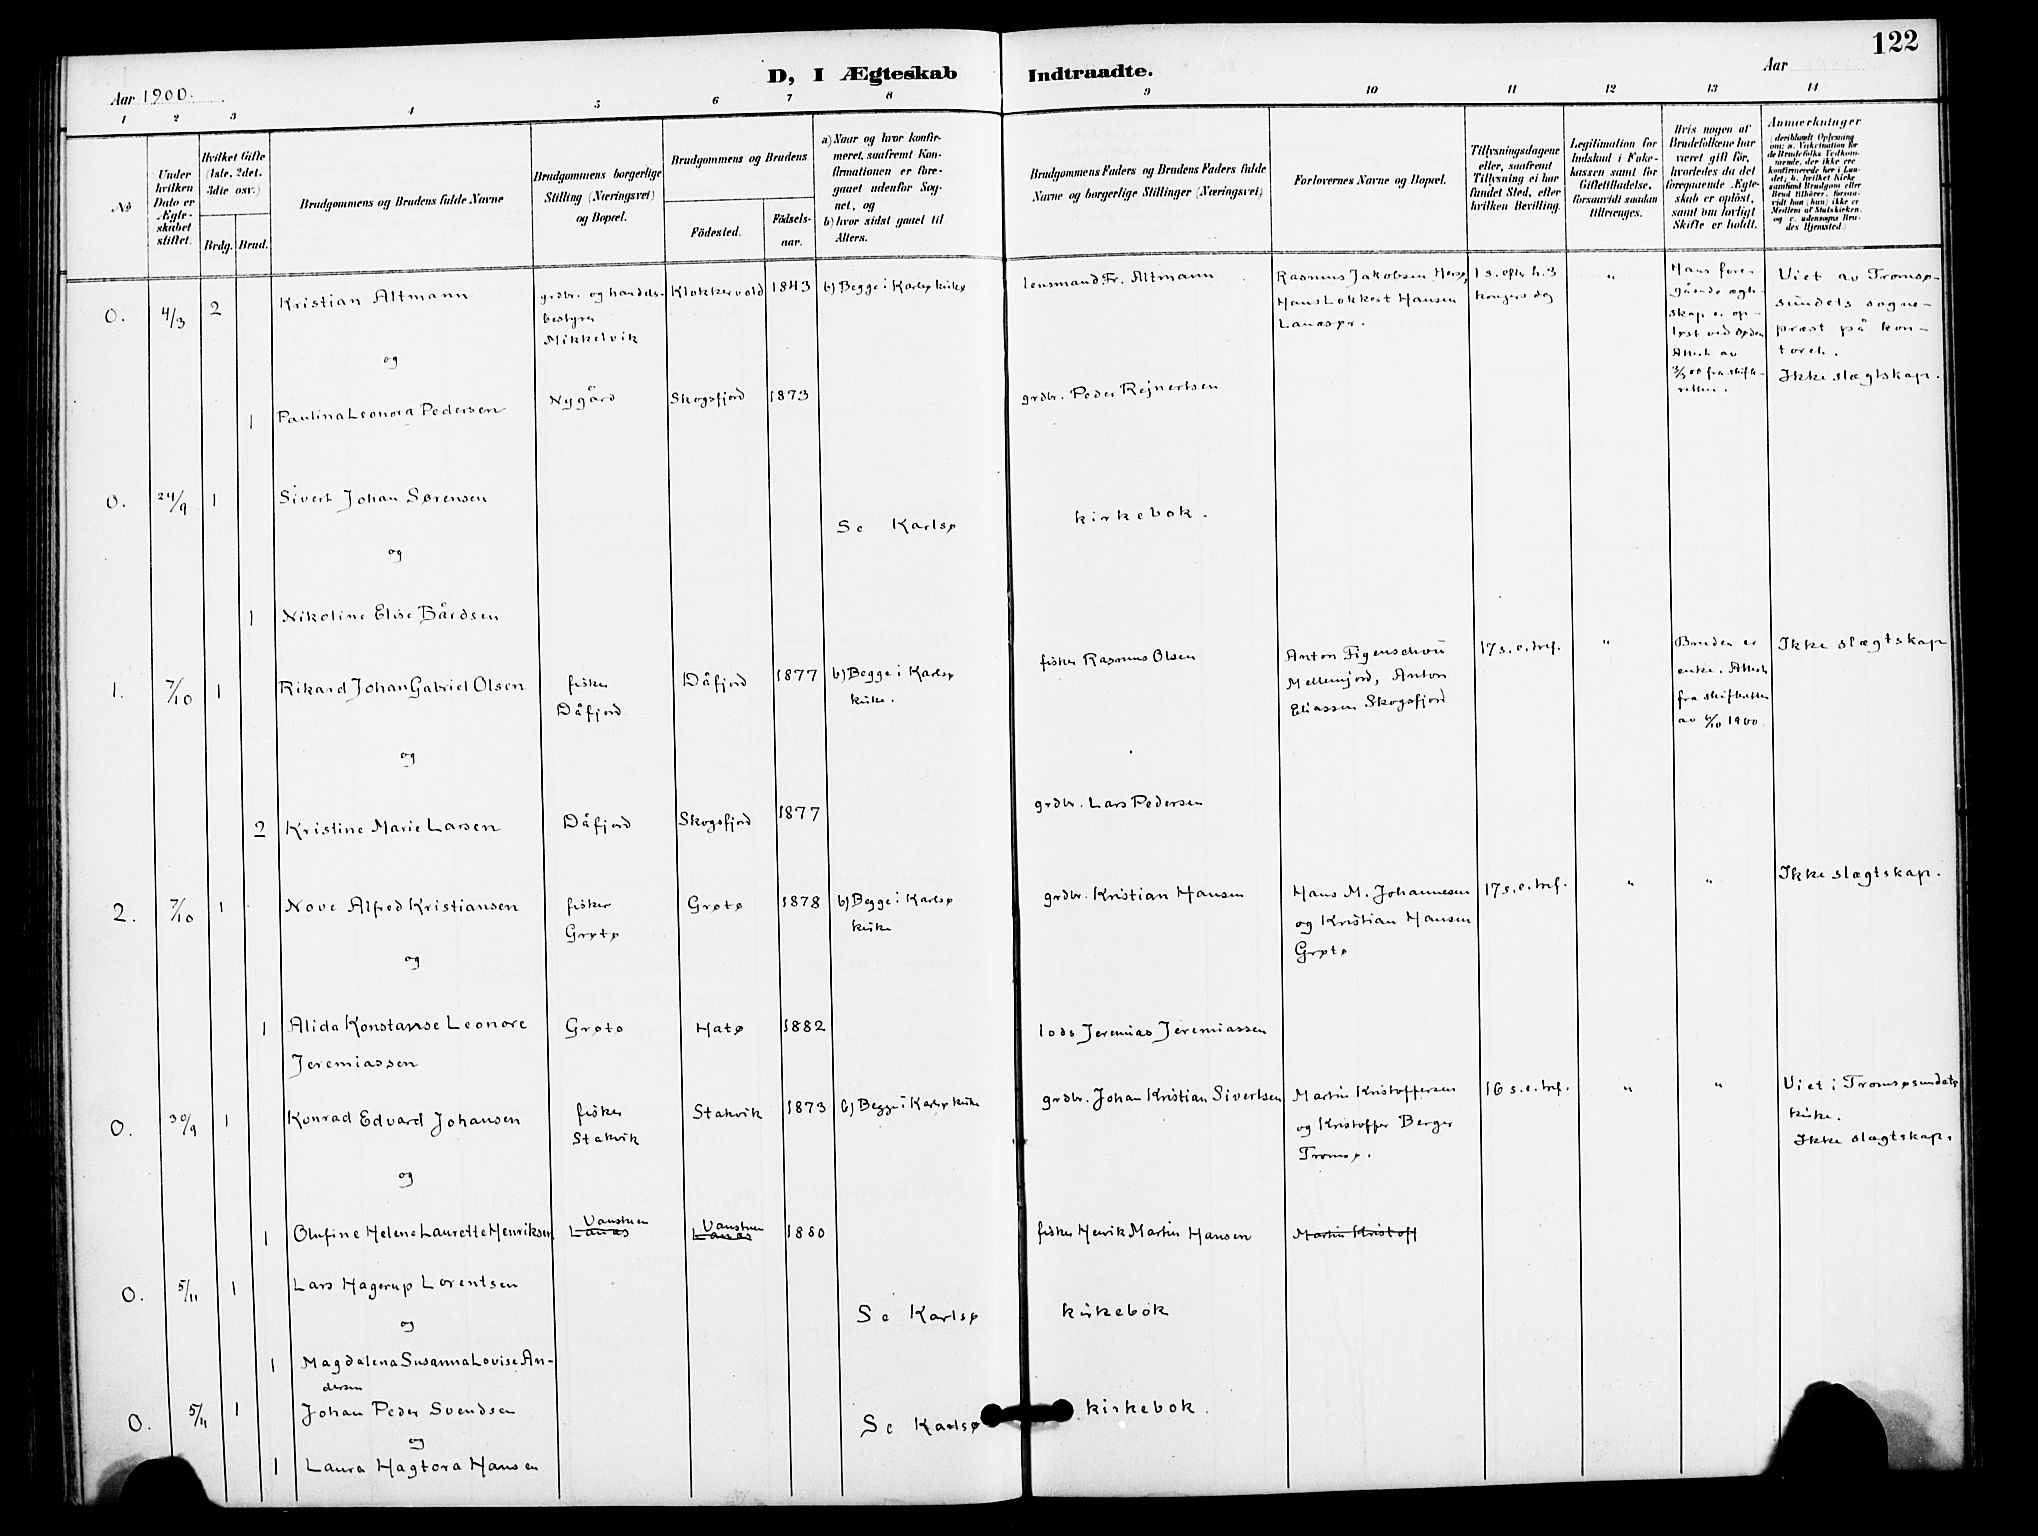 122
D, I Ægteskab Indtraadte.
Aar 1900. Aar
1 2 3 4 5 6 7 8 9 10 11 12 13 14
№
Under hvilken Dato er Ægteskabet stiftet.
Hvilket Gifte (1ste, 2det, 3die osv.)
Brdg. Brud.
Brudgommens og Brudens fulde Navne
Brudgommens borgerlige Stilling (Næringsvei) og Bopæl.
Brudgommens og Brudens
Födested. Födselsaar.
a) Naar og hvor konfirmeret, saafremt Konfirmationen er foregaaet udenfor Sognet, og
b) hvor sidst gaaet til Alters.
Brudgommens Faders og Brudens Faders fulde Navne og borgerlige Stillinger (Næringsvei)
Forlovernes Navne og Bopæl.
Tillysningsdagene eller, saafremt Tillysning ei har fundet Sted, efter hvilken Bevilling.
Legitimation for Indskud i Enkekassen samt for Giftetilladelse, forsaavidt saadan tiltrænges.
Hvis nogen af Brudefolkene har været gift för, hvorledes da det foregaaende Ægteskab er oplöst, samt om lovligt Skifte er holdt.
Anmerkninger
(deriblandt Oplysning om: a. Vakcination for de Brudefolks Vedkommende, der ikke ere konfirmerede her i Landet; b. hvilket Kirkesamfund Brudgom eller Brud tilhörer, forsaavidt han (hun) ikke er Medlem af Statskirken, og c. udensogns Brudes Hjemsted.)
0. 4/3 2 Kristian Altmann
grdbr. og handels-
bestyrer
Mikkelvik
Klokkervold 1843 b) Begge i Karlsø kirke
lensmand Fr. Altmann
Rasmus Jakobsen Hersø,
Hans Lokkert Hansen
Lanesør.
1 s. efter h. 3
kongers dag
"
Hans fore-
gående ægte-
skap er op-
løst ved døden
Attest av
3/3 00 fra skifte-
retten.
Viet av Tromsø-
sundets sogne-
præst på kon-
toret.
Ikke slægtskap.
og
1 Paulina Leonora Pedersen Nygård Skogsfjord 1873 grdbr. Peder Rejnertsen
0. 24/9 1 Sivert Johan Sørensen
Se Karlsø kirkebok.
og
1 Nikoline Elise Bårdsen
1. 7/10 1 Rikard Johan Gabriel Olsen
fisker
Dåfjord
Dåfjord 1877 b) Begge i Karlsø
kirke.
fisker Rasmus Olsen
Anton Figenschou
Mellemjord, Anton
Eliassen Skogsfjord
17 s. e. tref. "
Bruden er
enke. Attest
fra skifteretten
av 6/10 1900.
Ikke slægtskap
og
2 Kristine Marie Larsen Dåfjord Skogsfjord 1877 grdbr. Lars Pedersen
2. 7/10 1 Nove Alfred Kristiansen
fisker
Grøtø
Grøtø 1878 b) Begge i Karlsø
kirke
grdbr. Kristian Hansen
Hans M. Johannesen
og Kristian Hansen
Grøtø
17 s. e. tref. " "
Ikke slægtskap.
og
1 Alida Konstanse Leonore
Jeremiassen
Grøtø Hatø 1882 lods Jeremias Jeremiassen
0. 30/9 1 Konrad Edvard Johansen
fisker
Stakvik
Stakvik 1873 b) Begge i Karlsø kirke
grdbr. Johan Kristian Sivertsen
Martin Kristoffersen
og Kristoffer Berger
Tromsø.
16 s. e. tref. " "
Viet i Tromsøsundets
kirke.
Ikke slægtskap.
og
1 Olufine Helene Laurette Henriksen
Vanstuen
Lanæs
Vanstuen
Lanæs
1880 fisker Henrik Martin Hansen
Martin Kristoff
0. 5/11 1 Lars Hagerup Lorentsen
Se Karlsø kirkebok
og
1 Magdalena Susanna Lovise An-
dersen
0. 5/11 1 Johan Peder Svendsen
Se Karlsø kirkebok.
og
1 Laura Hagtora Hansen